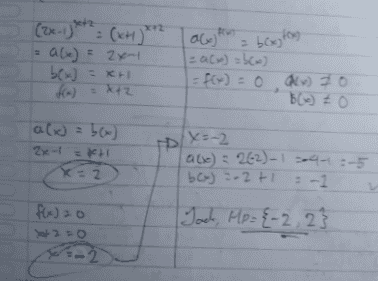 (2x-1)^x+2 = (x+1)^x+2
= a(x) = 2x-1
b(x) = x+1
f(x) = x+2
a(x) = b(x)
2x-1 = x+1
x = 2
f(x) = 0
x+2 = 0
x = -2
a(x)^f(x) = b(x)^f(x)
= a(x) = b(x)
= f(x) = 0, a(x) ≠ 0
b(x) ≠ 0
x = -2
a(x) = 2(-2)-1 = -4-1 = -5
b(x) = -2+1 = -1
Jadi, Hp = {-2, 2}